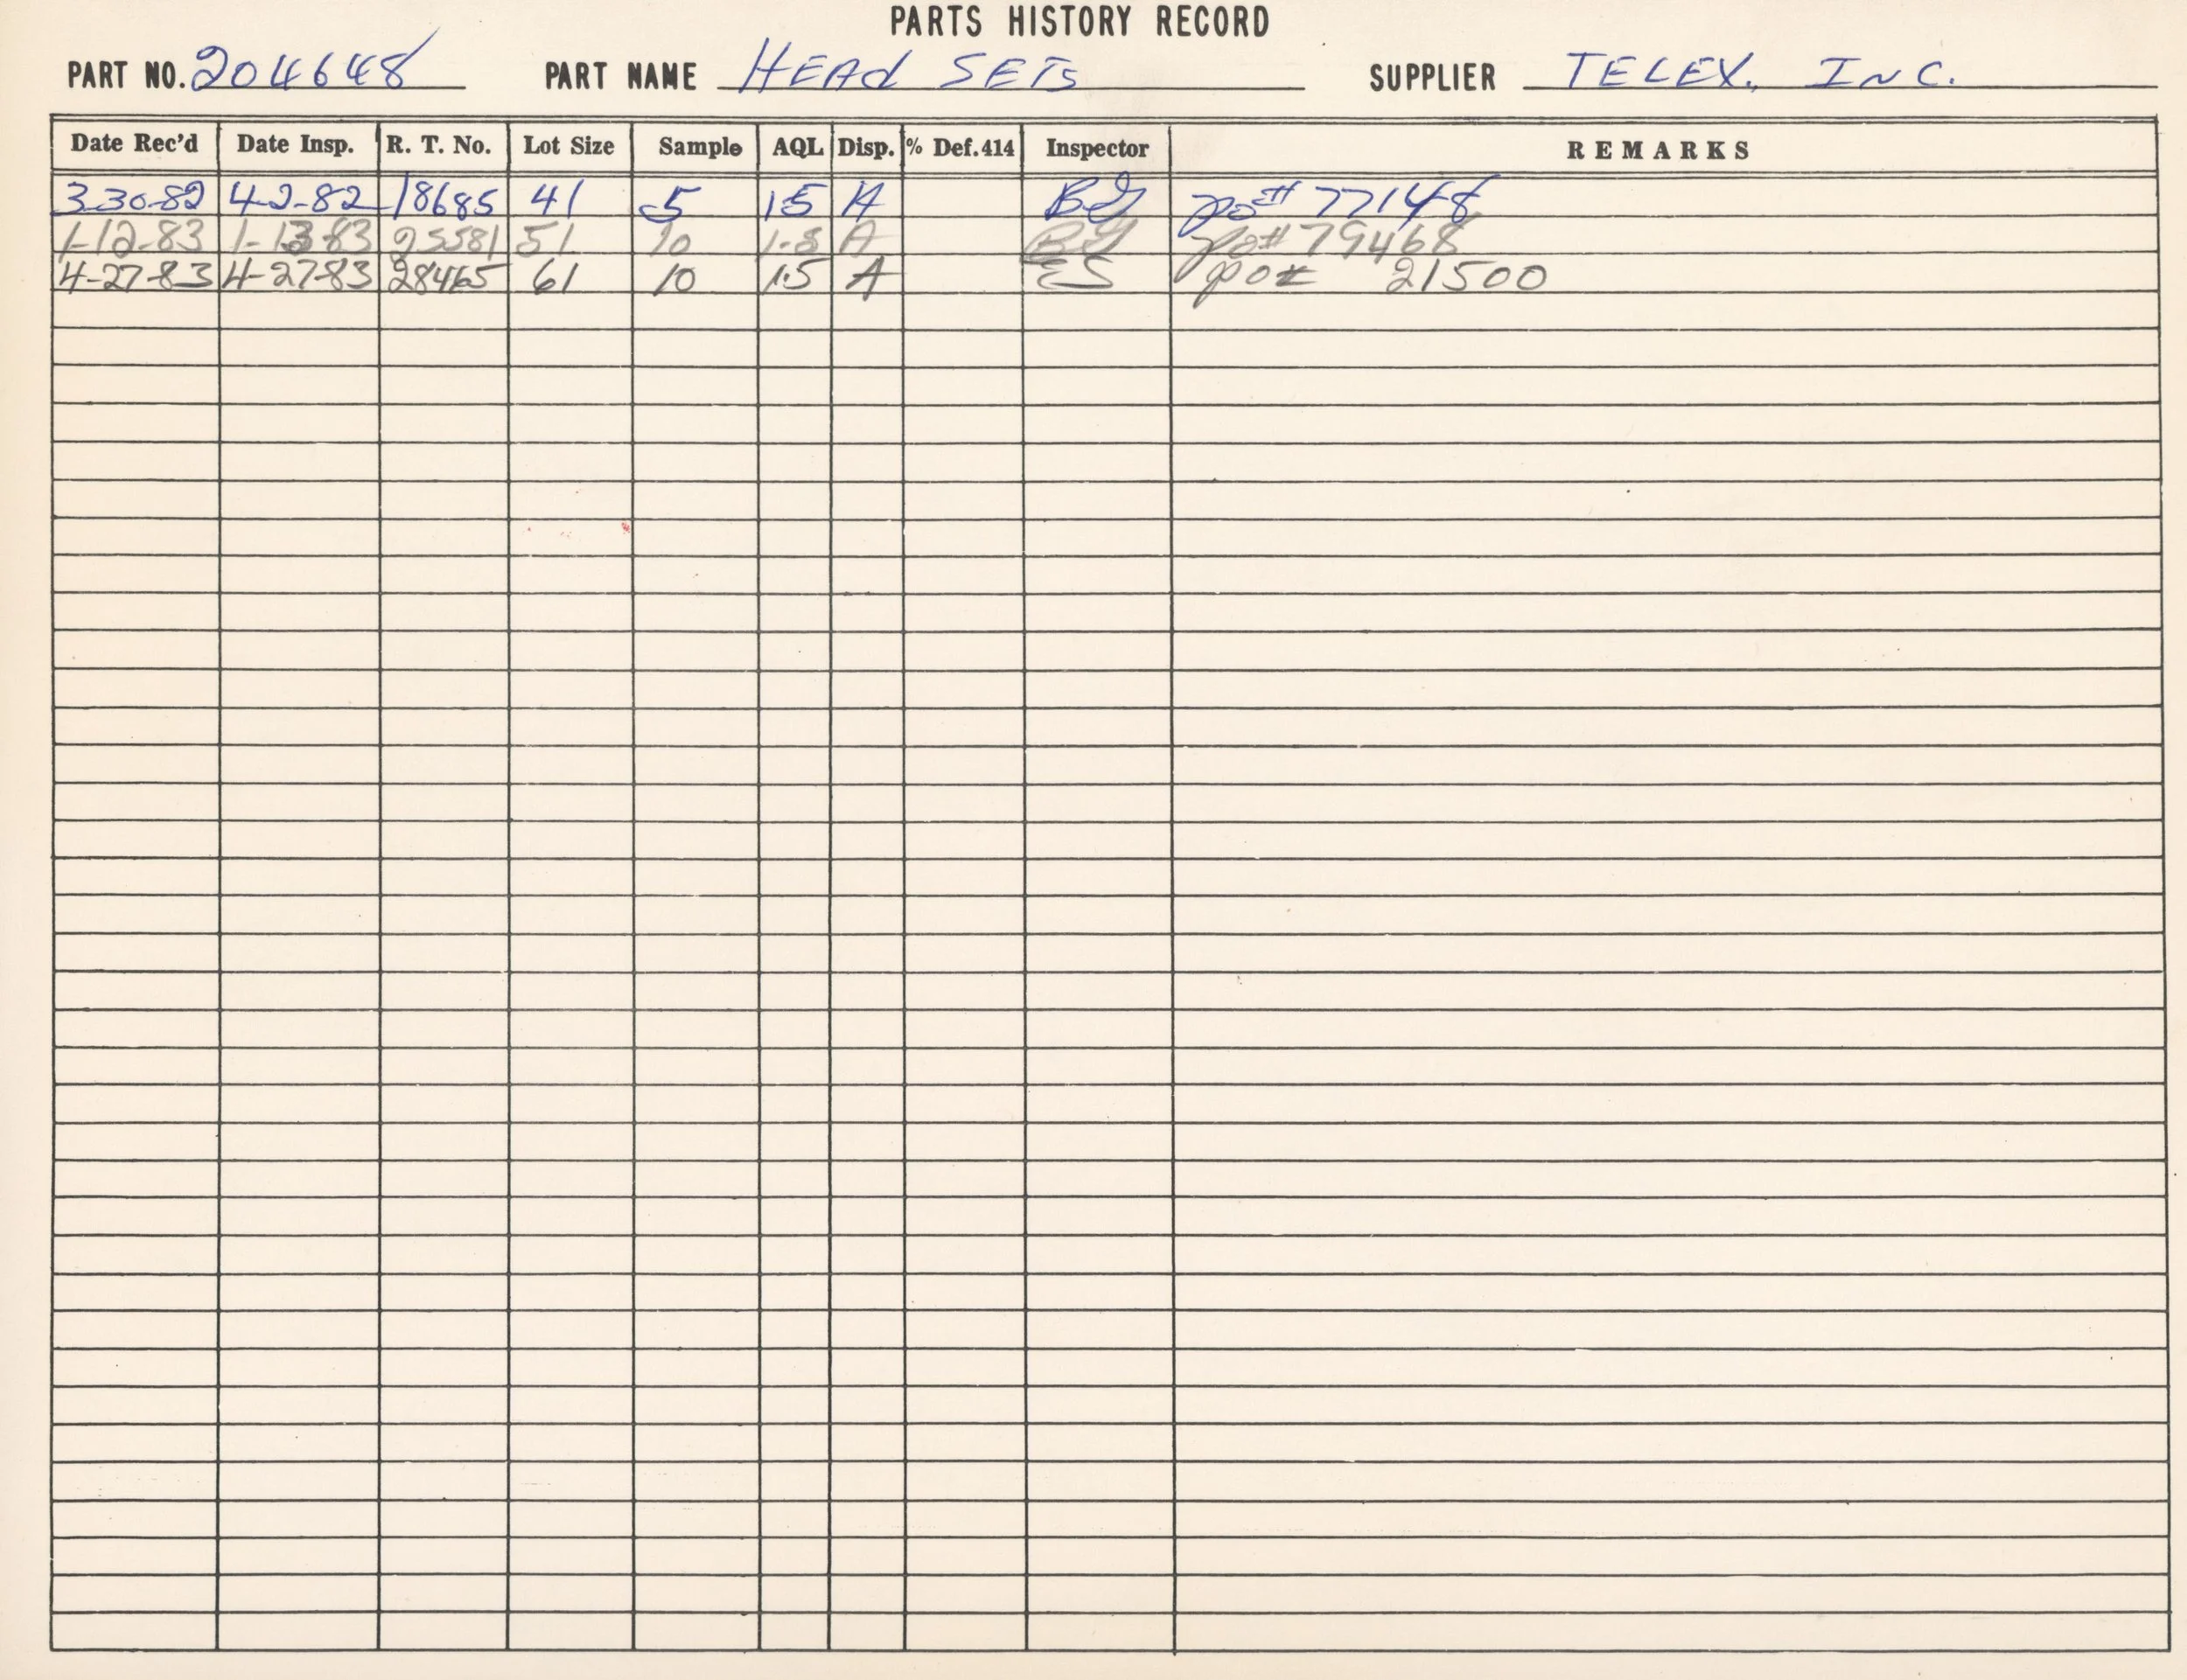 PARTS HISTORY RECORD
PART NO. 204648 PART NAME HEAd SETS SUPPLIER TELEX, INC.
Date Rec'd Date Insp. R. T. No. Lot Size Sample AQL Disp. % Def.414 Inspector REMARKS
3-30-82 4-2-82 18685 41 5 15 A BG po# 77148
1-12-83 1-13-83 25581 51 10 A BG po# 79468
4-27-83 4-27-83 28465 61 10 1.5 A ES po# 21500